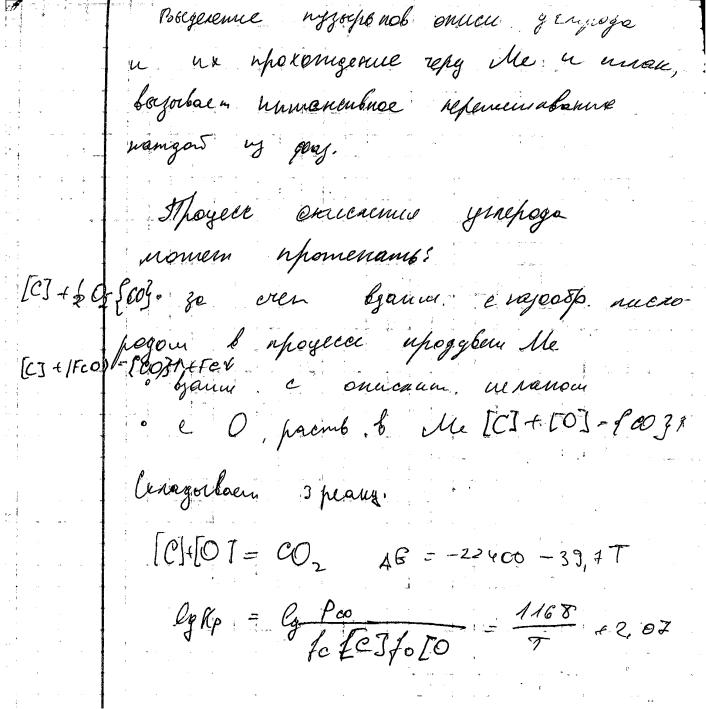 Выделение пузырьков окиси углерода
и их прохождение через Ме и шлак,
вызывает интенсивное перемешивание
каждой из фаз.
Процесс окисления углерода
может протекать:
[C] + 1/2 O2 {CO} • за счет взаим. с газообр. кисло-
родом в процессе продувки Ме
[C] + (FeO) = {CO}↑ + Fe
• взаим. с окислит. шлаком
• с О, раств. в Ме [C] + [O] = {CO}↑
Складываем 3 реакц.
[C]+[O] = CO2 ΔG = -22400 - 39,7T
lg Kp = lg Pco / fc [C] fo [O = 1168 / T + 2,07